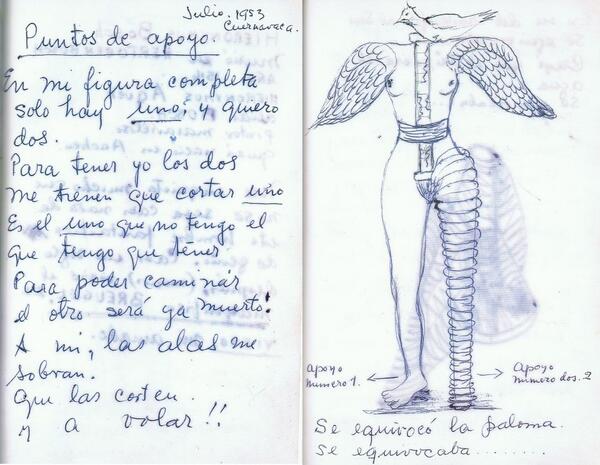 Julio. 1953
Cuernavaca.
Puntos de apoyo.
En mi figura completa
solo hay uno; y quiero
dos.
Para tener yo los dos
me tienen que cortar uno
Es el uno que no tengo el
que tengo que tener.
Para poder caminar
el otro será ya muerto!
A mi, las alas me
sobran.
Que las corten
y a volar!!
apoyo
numero 1.
Apoyo
numero dos. 2
Se equivocó la paloma.
Se equivocaba........